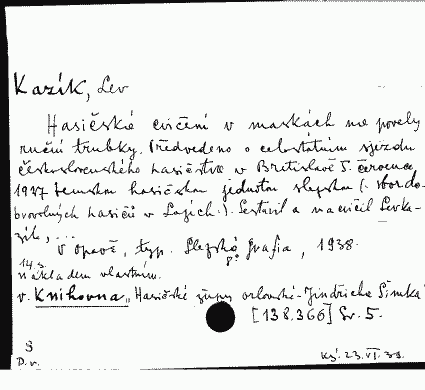 Kazík, Lev
Hasičské cvičení v maskách na povely
ruční trubky. Předvedeno o celostátním sjezdu
československého hasičstva v Bratislavě 5. července
1937 zemskou hasičskou jednotou slezskou (. sbor do-
brovolných hasičů v Lazích.). Sestavil a nacvičil Lev Ka-
zík, ...
V Opavě, typ. Slezská Grafia, 1938.
14 s. 8°.
nákladem vlastním.
v. Knihovna „ Hasičské župy orlovské - Jindřicha Šimka"
[138.366] Sv. 5.
D.v. Kř. 23.VI.38.